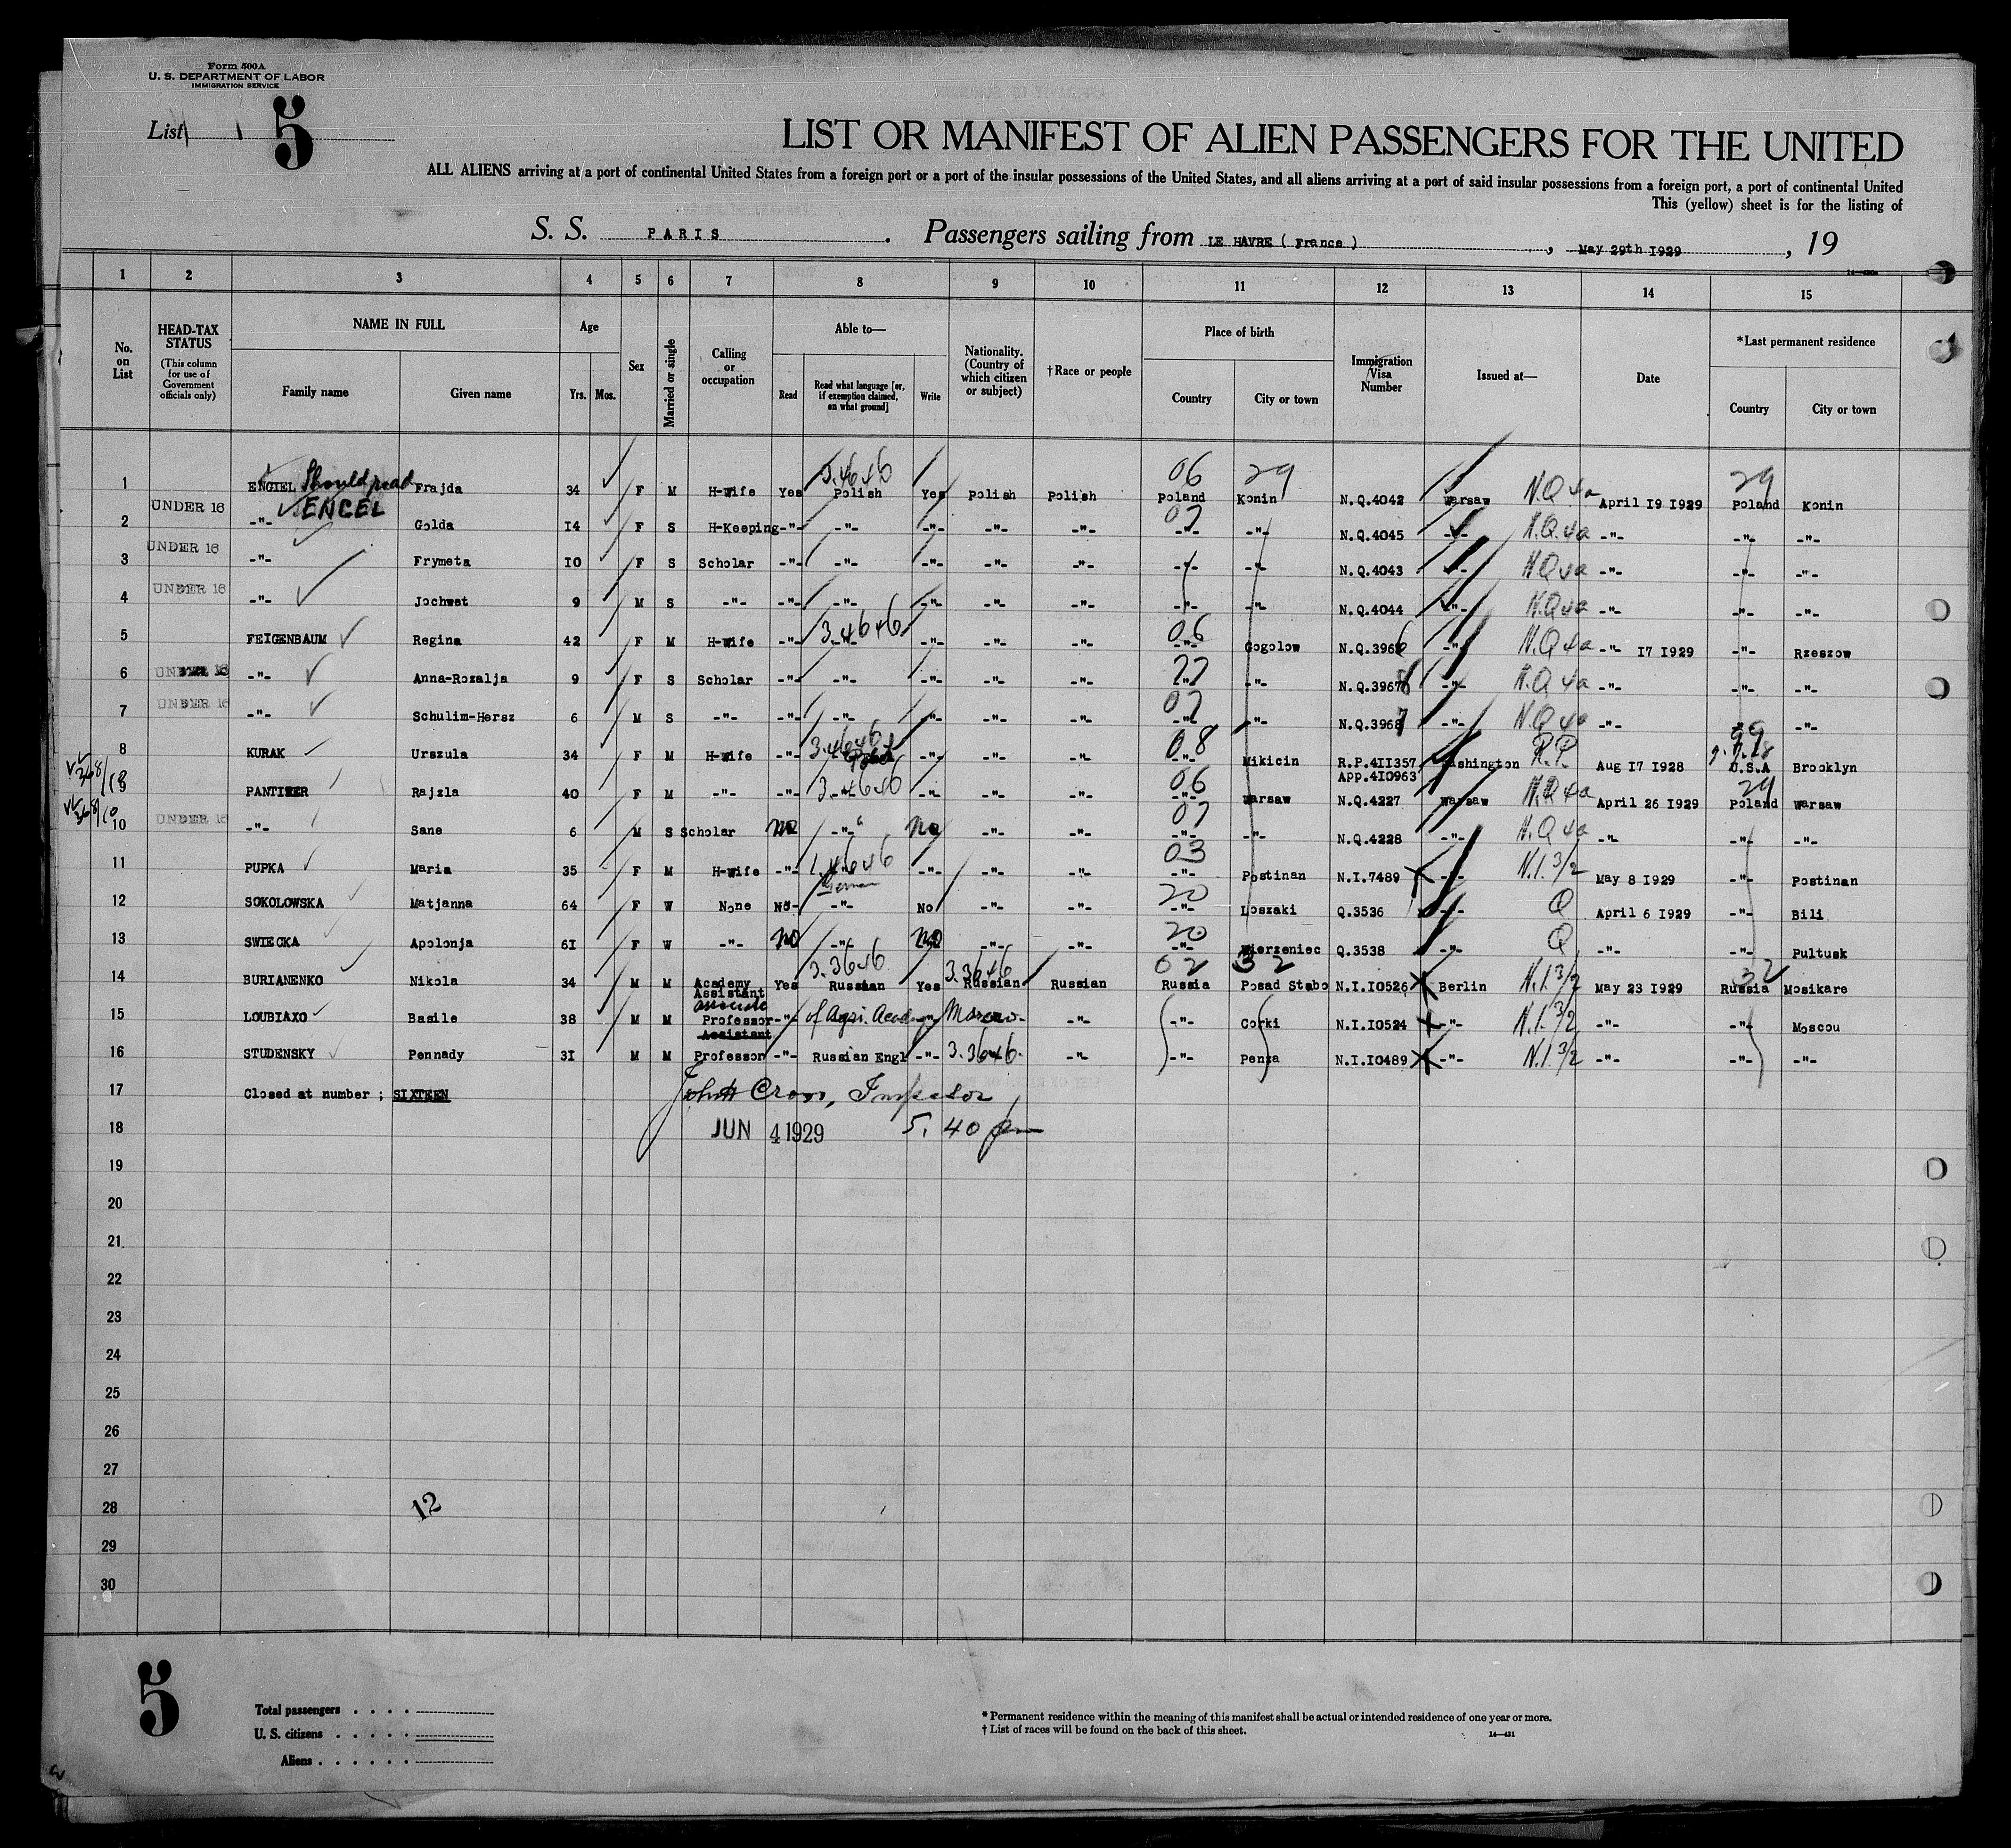 Form 500A
U. S. DEPARTMENT OF LABOR
IMMIGRATION SERVICE
List 5
LIST OR MANIFEST OF ALIEN PASSENGERS FOR THE UNITED
ALL ALIENS arriving at a port of continental United States from a foreign port or a port of the insular possessions of the United States, and all aliens arriving at a port of said insular possessions from a foreign port, a port of continental United
This (yellow) sheet is for the listing of
S. S. PARIS. Passengers sailing from LE HAVRE ( France ), May 29th I929, 19
1 2 3 4 5 6 7 8 9 10 11 12 13 14 15
No. on List
HEAD-TAX STATUS
(This column for use of Government officials only)
NAME IN FULL
Family name Given name
Age
Yrs. Mos.
Sex
Married or single
Calling or occupation
Able to—
Read Read what language [or, if exemption claimed, on what ground] Write
Nationality. (Country of which citizen or subject)
†Race or people
Place of birth
Country City or town
Immigration Visa Number
Issued at—
Date
*Last permanent residence
Country City or town
3.4646 06 29 29
1 ENGIEL Should read Frajda 34 F M H-Wife Yes Polish Yes Polish Polish Poland Konin N.Q.4042 Warsaw N.Q 4a April I9 I929 Poland Konin
ENGEL
2 UNDER 16 -"- Golda I4 F S H-Keeping -"- -"- -"- -"- -"- 07 -"- -"- N.Q.4045 -"- N.Q.4a -"- -"- -"-
3 UNDER 16 -"- Frymeta I0 F S Scholar -"- -"- -"- -"- -"- -"- -"- N.Q.4043 -"- N.Q 4a -"- -"- -"-
4 UNDER 16 -"- Jochwet 9 M S -"- -"- -"- -"- -"- -"- -"- -"- N.Q.4044 -"- N.Q 4a -"- -"- -"-
5 FEIGENBAUM Regina 42 F M H-Wife -"- 3.4646 -"- -"- -"- -"- 06 -"- Gogolow N.Q.3966 -"- N.Q 4a -"- I7 I929 -"- Rzeszow
6 UNDER 16 -"- Anna-Rozalja 9 F S Scholar -"- -"- -"- -"- -"- -"- -"- N.Q.3967 -"- N.Q 4a -"- -"- -"-
7 UNDER 16 -"- Schulim-Hersz 6 M S -"- -"- -"- -"- -"- -"- 07 -"- -"- N.Q.3968 -"- N.Q 4a -"- -"- -"-
8 KURAK Urszula 34 F M H-Wife -"- 3.4646 -"- -"- -"- 08 -"- Mikicin R.P.4II357 Washington R.P. Aug I7 I928 U.S.A Brooklyn
APP.4I0963
9 PANTIRER Rajzla 40 F M -"- -"- 3.4646 -"- -"- -"- -"- 06 -"- Warsaw N.Q.4227 Warsaw N.Q 4a April 26 I929 29 Poland Warsaw
10 UNDER 16 -"- Sane 6 M S Scholar No -"- No -"- -"- 07 -"- -"- N.Q.4228 -"- N.Q 4a -"- -"- -"-
11 PUPKA Maria 35 F M H-Wife -"- 1.4646 -"- -"- -"- -"- 03 -"- Postinan N.I.7489 -"- N.I 3/2 May 8 I929 -"- Postinan
German
12 SOKOLOWSKA Matjanna 64 F W None No -"- No -"- -"- 20 -"- Loszaki Q.3536 -"- Q April 6 I929 -"- Bili
13 SWIECKA Apolonja 6I F W -"- No -"- No -"- -"- 20 -"- Wierzeniec Q.3538 -"- Q -"- -"- Pultusk
3.3646 3.3646 02 32 32
14 BURIANENKO Nikola 34 M M Academy Yes Russian Yes Russian Russian Russia Posad Stabo N.I.I0526 Berlin N.I. 3/2 May 23 I929 Russia Mosikare
Assistant
15 LOUBIAXO Basile 38 M M Professor -"- of Agri. Acad -"- -"- -"- Gorki N.I.I0524 -"- N.I. 3/2 -"- -"- Moscou
Assistant
16 STUDENSKY Pennady 3I M M Professor -"- Russian Engl -"- 3.3646. -"- -"- Penza N.I.I0489 -"- N.I. 3/2 -"- -"- -"-
17 Closed at number ; SIXTEEN Cross, Inspector
18 JUN 4 1929 5. 40 pm
19
20
21
22
23
24
25
26
27
28 12
29
30
5
Total passengers . . . .
U. S. citizens . . . . .
Aliens . . . . . .
* Permanent residence within the meaning of this manifest shall be actual or intended residence of one year or more.
† List of races will be found on the back of this sheet.
14—431